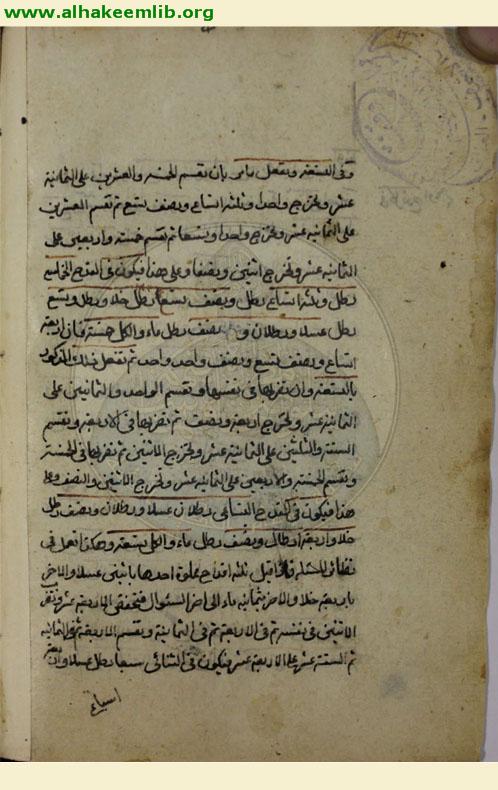 www.alhakeemlib.org
وفى التسعة وتفعل بأن تقسم الخمسة والعشرين على الثمانية
عشر ويخرج واحدا وثلثة اتساع ونصف تسع ثم تقسم العشرين
على الثمانية عشر ويخرج واحدا وتسعا ثم تقسم خمسة واربعين على
الثمانية عشر ويخرج اثنين ونصفا وعلى هذا فيكون فى القدح الخماسى
رطل وثلثة اتساع رطل ونصف تسع رطل خلا ورطل وتسع
رطل عسلا ورطلان ونصف رطل ماء والكل خمسة فان اربعة
اتساع ونصف تسع ونصف واحد واحد ثم تفعل ذلك المذكور
بالتسعة وان تضربها فى نفسها وتقسم الواحد والثمانين على
الثمانية عشر ويخرج اربعة ونصف ثم تضربها فى الاربعة وتقسم
الستة والثلثين على الثمانية عشر ويخرج الاثنين ثم تضربها فى الخمسة
وتقسم الخمسة والاربعين على الثمانية عشر ويخرج الاثنين والنصف وعلى
هذا فيكون فى القدح التساعى رطلان عسلا ورطلان ونصف رطل
خلا واربعة ارطال ونصف رطل ماء والكل تسعة وهكذا تعمل فى
نظائر المسئلة فاذا قيل ثلثة اقداح مملوة احدها باثنى عسلا والاخر
باربعة خلا والاخر بثمانية ماء الى اخر السئوال فتجمع الى اربعة عشر وتضرب
الاثنين فى نفسه ثم فى الاربعة ثم فى الثمانية وتقسم الاربعة ثم الثمانية
ثم الستة عشر على الاربعة عشر فيكون فى الثنائى سبعا رطل عسلا واربعة
اسباع